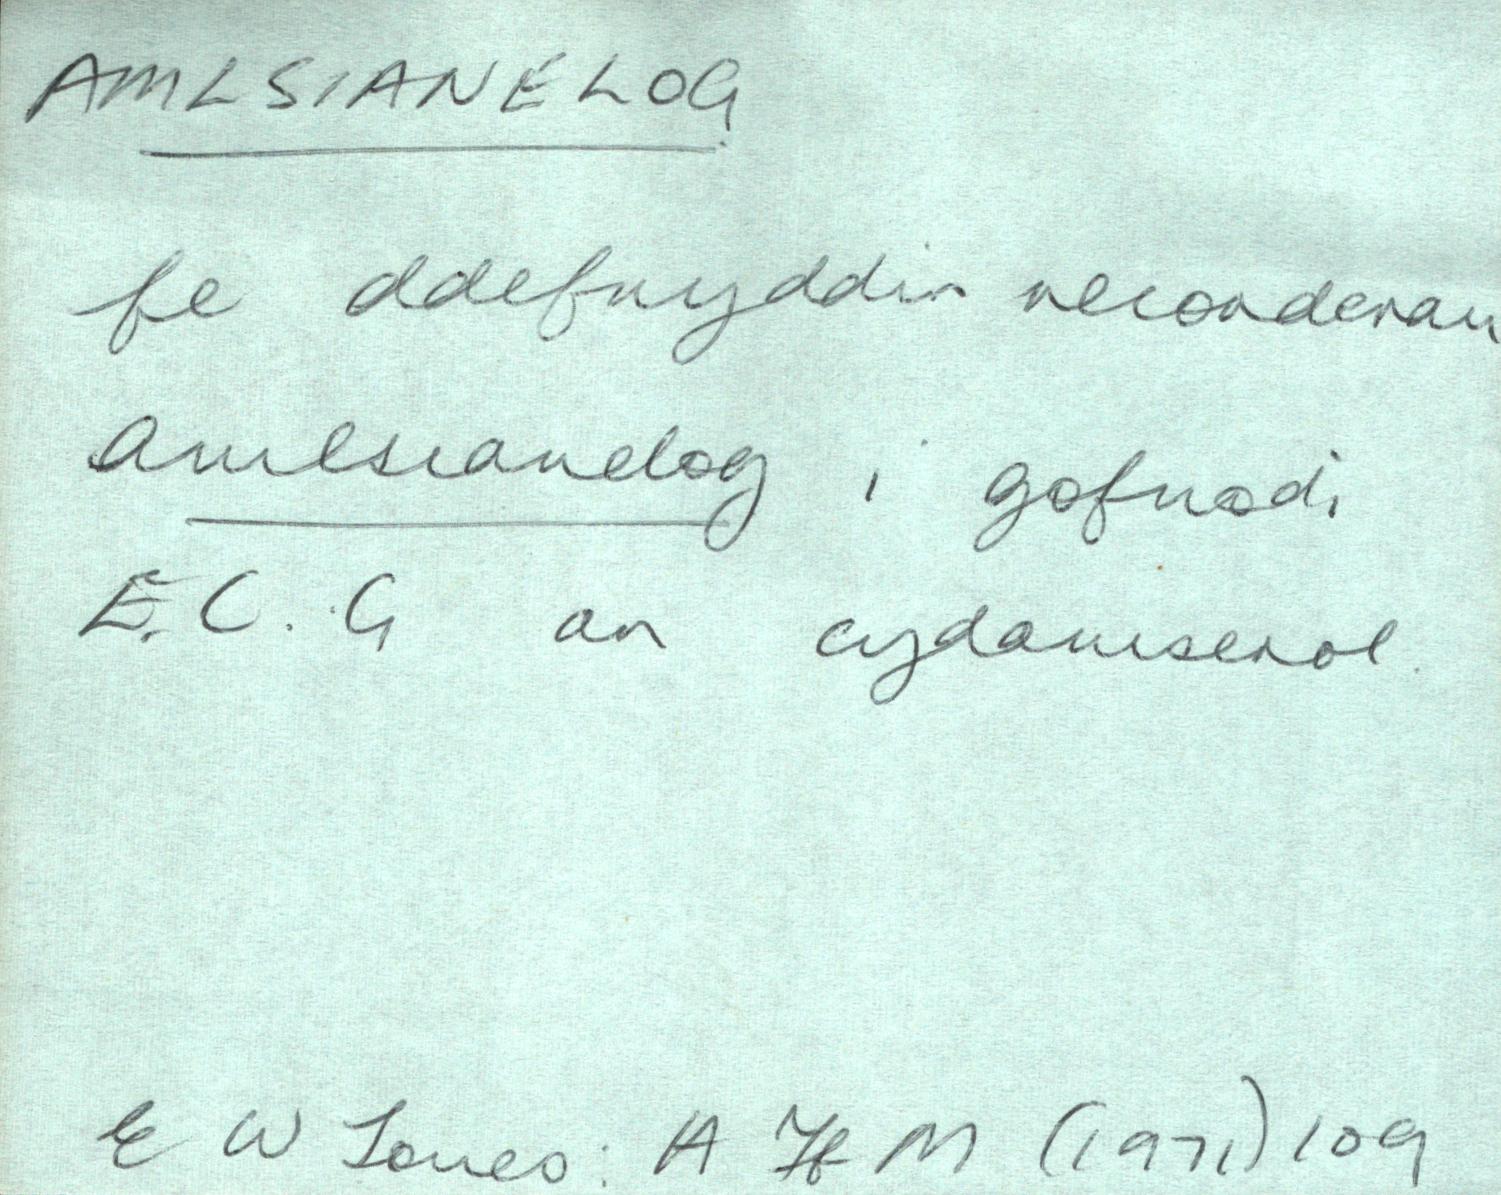 AMLSIANELOG
fe ddefnyddir recorderau
amlsianelog i gofnodi
E.C.G ar cydamserol.
E W Jones: A Ff M (1971) 109